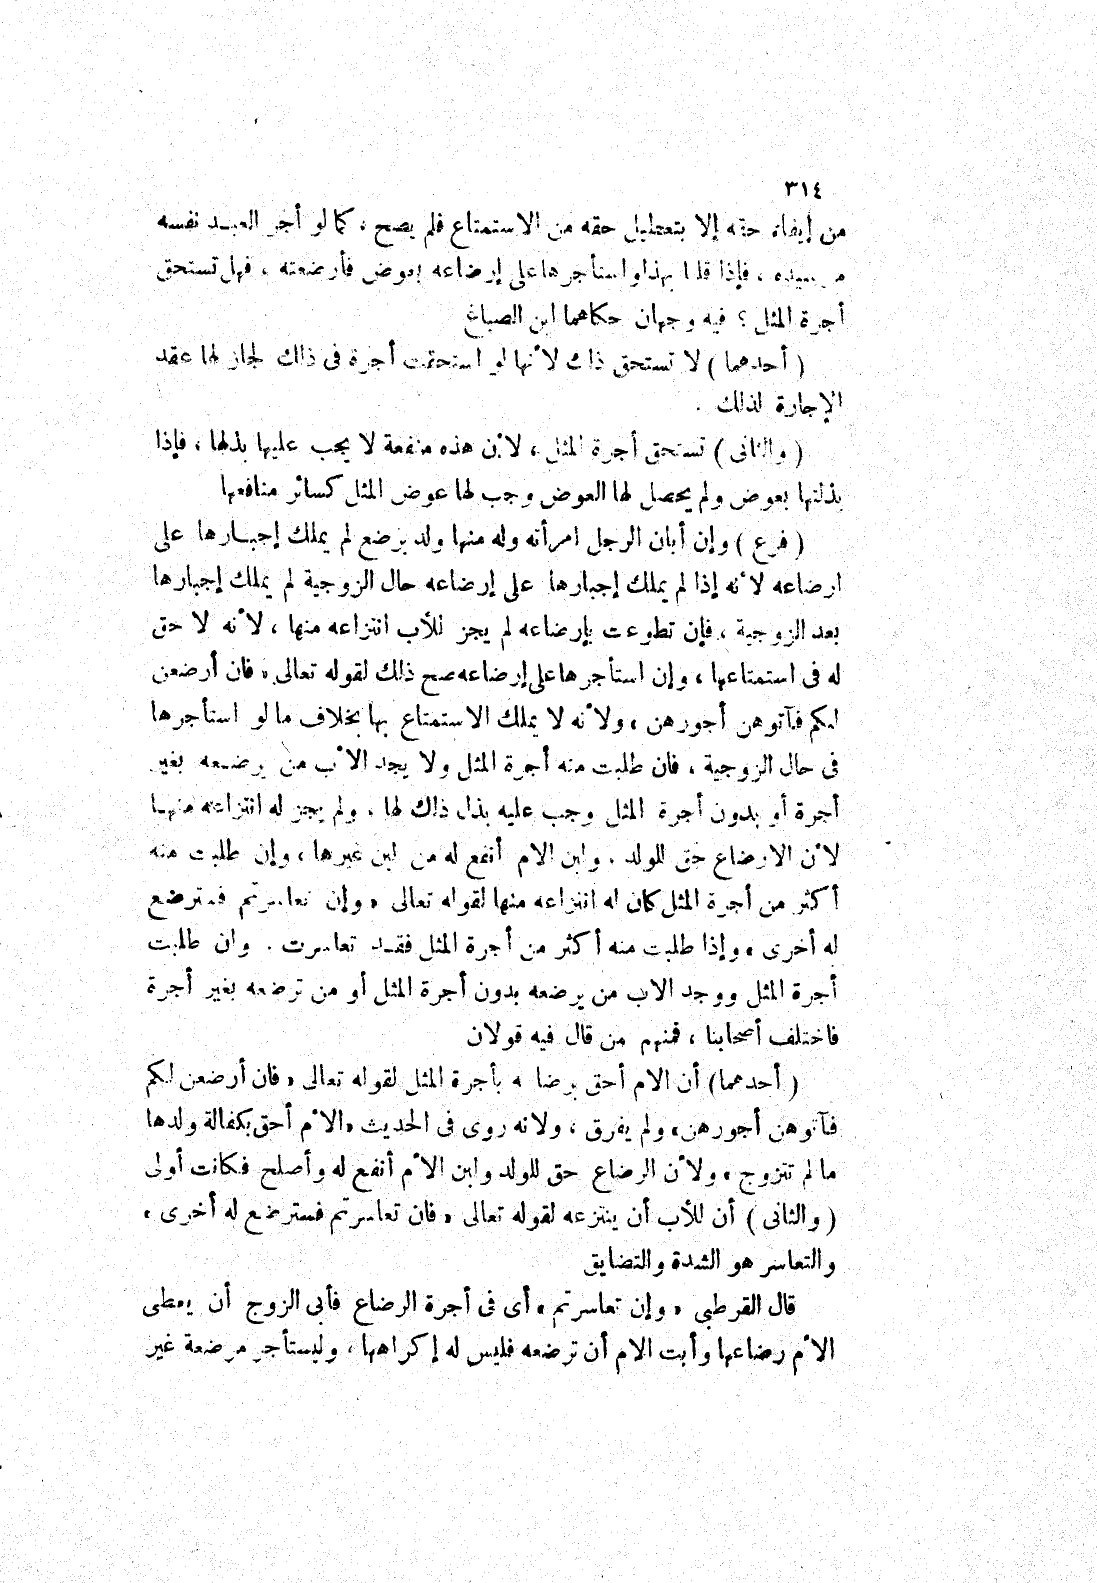 ٣١٤
من إيفاء حقه إلا بتعطيل حقه من الاستمتاع فلم يصح ، كما لو أجر العبد نفسه
من سيده ، فإذا قلنا بهذا واستأجرها على إرضاعه بعوض فأرضعته ، فهل تستحق
أجرة المثل ؟ فيه وجهان حكاهما ابن الصباغ
( أحدهما ) لا تستحق ذلك لأنها لو استحقت أجرة فى ذلك لجاز لها عقد
الإجارة لذلك .
( والثانى ) تستحق أجرة المثل ، لأن هذه منفعة لا يجب عليها بذلها ، فإذا
بذلتها بعوض ولم يحصل لها العوض وجب لها عوض المثل كسائر منافعها
( فرع ) وإن أبان الرجل امرأته وله منها ولد يرضع لم يملك إجبارها على
ارضاعه لأنه إذا لم يملك إجبارها على إرضاعه حال الزوجية لم يملك إجبارها
بعد الزوجية ، فإن تطوعت بإرضاعه لم يجز للأب انتزاعه منها ، لأنه لا حق
له فى استمتاعها ، وإن استأجرها على إرضاعه صح ذلك لقوله تعالى « فان أرضعن
لكم فآتوهن أجورهن ، ولأنه لا يملك الاستمتاع بها بخلاف ما لو استأجرها
فى حال الزوجية ، فان طلبت منه أجرة المثل ولا يجد الأب من يرضعه بغير
أجرة أو بدون أجرة المثل وجب عليه بذل ذلك لها . ولم يجز له انتزاعه منها
لأن الارضاع حق للولد . ولبن الام أنفع له من لبن غيرها ، وإن طلبت منه
أكثر من أجرة المثل كان له انتزاعه منها لقوله تعالى « وإن تعاسرتم فسترضع
له أخرى » وإذا طلبت منه أكثر من أجرة المثل فقد تعاسرت . وان طلبت
أجرة المثل ووجد الاب من يرضعه بدون أجرة المثل أو من ترضعه بغير أجرة
فاختلف أصحابنا ، فمنهم من قال فيه قولان
( أحدهما) أن الام أحق برضاعه بأجرة المثل لقوله تعالى « فان أرضعن لكم
فآتوهن أجورهن» ولم يفرق ، ولانه روى فى الحديث «الأم أحق بكفالة ولدها
ما لم تتزوج » ولأن الرضاع حق للولد ولبن الأم أنفع له وأصلح فكانت أولى
( والثانى ) أن للأب أن ينتزعه لقوله تعالى « فان تعاسرتم فسترضع له أخرى »
والتعاسر هو الشدة والتضايق
قال القرطبى « وإن تعاسرتم » أى فى أجرة الرضاع فأبى الزوج أن يعطى
الأم رضاعها وأبت الام أن ترضعه فليس له إكراهها ، وليستأجر مرضعة غير